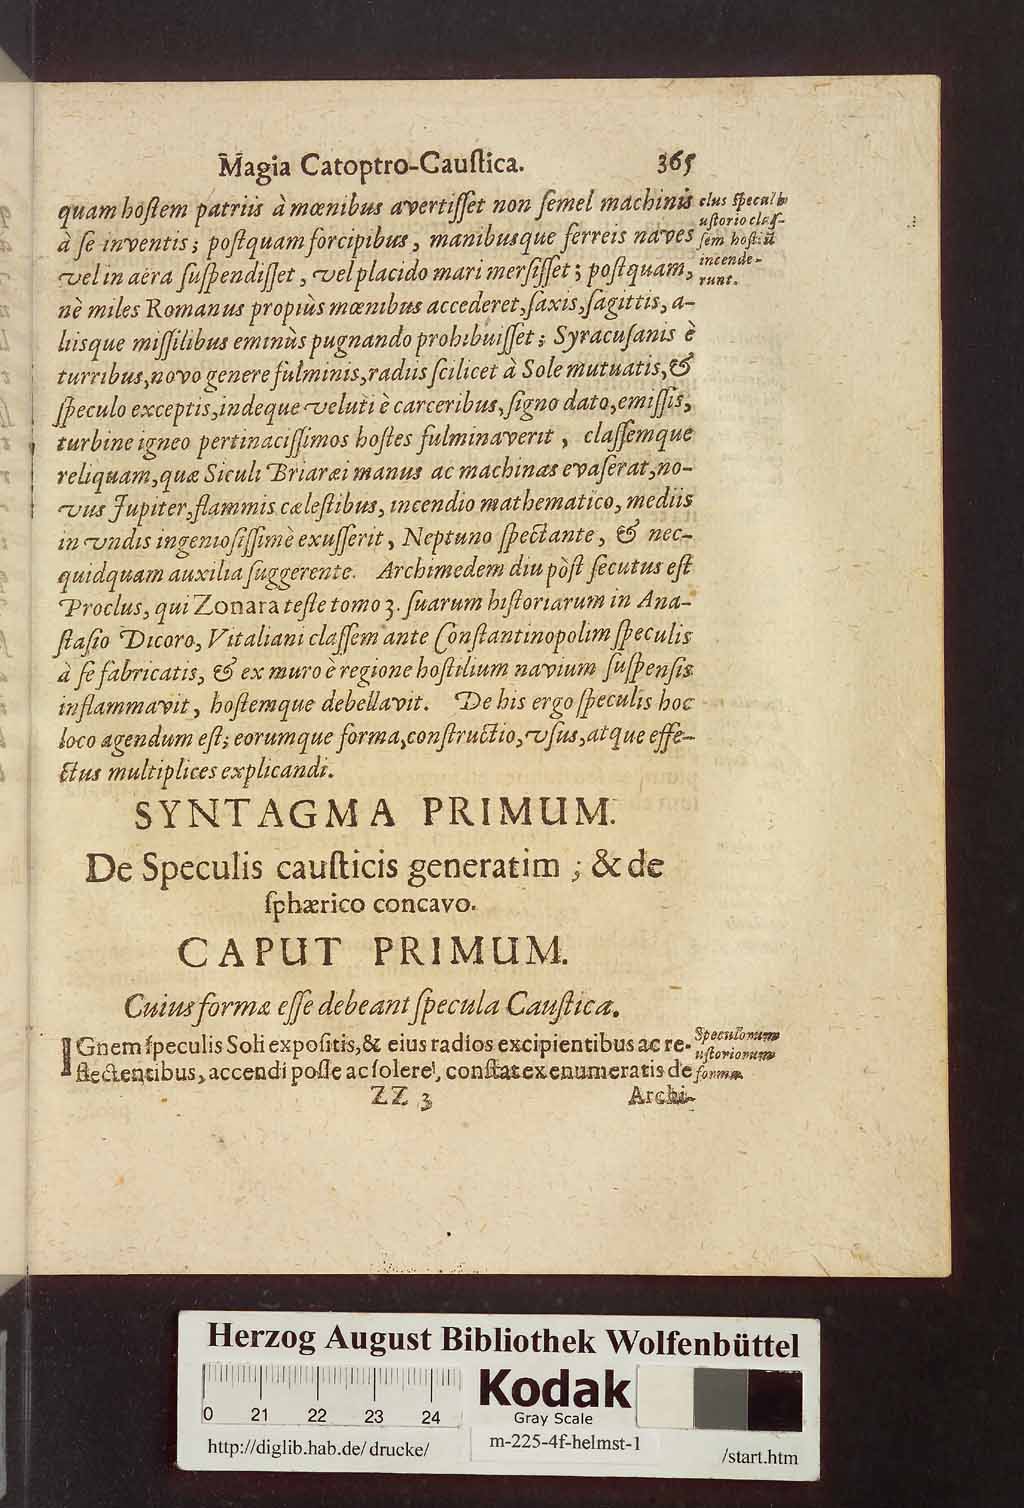 Magia Catoptro-Caustica. 365
quam hostem patriis à mœnibus avertisset non semel machinis
à se inventis; postquam forcipibus, manibusque ferreis naves
vel in aëra suspendisset, vel placido mari mersisset; postquam,
nè miles Romanus propiùs mœnibus accederet, saxis, sagittis, a-
liisque missilibus eminùs pugnando prohibuisset; Syracusanis è
turribus, novo genere fulminis, radiis scilicet à Sole mutuatis, &
speculo exceptis, indeque veluti è carceribus, signo dato, emissis,
turbine igneo pertinacissimos hostes fulminaverit, classemque
reliquam, quæ Siculi Briaræi manus ac machinas evaserat, no-
vus Jupiter, flammis cælestibus, incendio mathematico, mediis
in undis ingeniosissimè exusserit, Neptuno spectante, & nec-
quidquam auxilia suggerente. Archimedem diu pòst secutus est
Proclus, qui Zonara teste tomo 3. suarum historiarum in Ana-
stasio Dicoro, Vitaliani classem ante Constantinopolim speculis
à se fabricatis, & ex muro è regione hostilium navium suspensis
inflammavit, hostemque debellavit. De his ergo speculis hoc
loco agendum est; eorumque forma, constructio, usus, atque effe-
ctus multiplices explicandi.
elus specul
ustorio clas-
sem hostiū
incende-
runt.
SYNTAGMA PRIMUM.
De Speculis causticis generatim; & de
sphærico concavo.
CAPUT PRIMUM.
Cuius formæ esse debeant specula Caustica.
IGnem speculis Soli expositis, & eius radios excipientibus ac re-
flectentibus, accendi posse ac solere, constat ex enumeratis de
Speculorum
ustoriorum
forma.
ZZ 3 Archi-
Herzog August Bibliothek Wolfenbüttel
0 21 22 23 24
Kodak
Gray Scale
http://diglib.hab.de/drucke/ m-225-4f-helmst-1 /start.htm